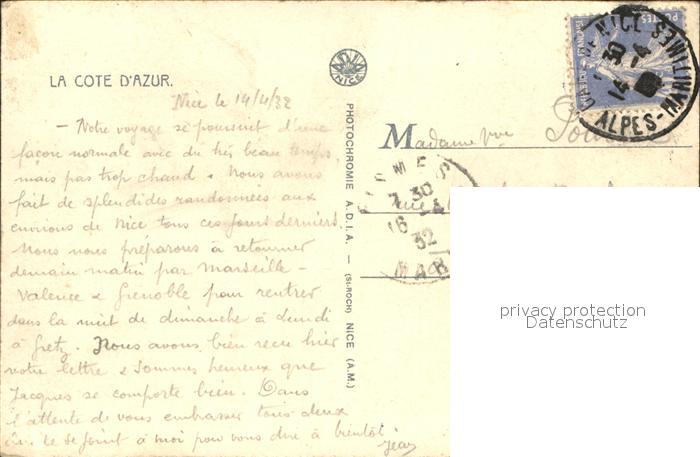 LA COTE D'AZUR.
Nice le 14/4/32
- Notre voyage se poursuit d'une
façon normale avec du très beau temps,
mais pas trop chaud. Nous avons
fait de splendides randonnées aux
environs de Nice tous ces jours derniers.
Nous nous préparons à retourner
demain matin par Marseille -
Valence & Grenoble pour rentrer
dans la nuit de dimanche à Lundi
à Gretz. Nous avons bien reçu hier
votre lettre & sommes heureux que
Jacques se comporte bien. Dans
l'attente de vous embrasser tous deux
se joint à moi pour vous dire à bientôt
Jean
ADIA
NICE
PHOTOCHROMIE A.D.I.A. - (ST-ROCH) NICE (A.M.)
Madame Vve
rue
POSTES
NICE
30
14-4
ALPES-MARITIMES
7 30
16-4
32
MAR
privacy protection
Datenschutz